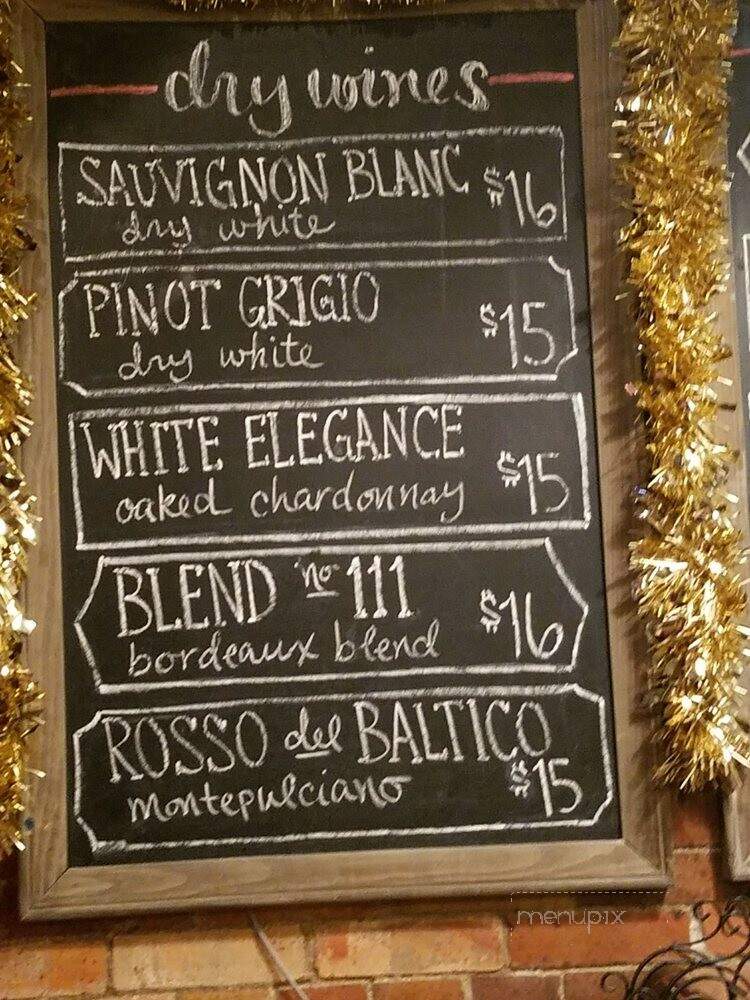 dry wines
SAUVIGNON BLANC $16
dry white
PINOT GRIGIO $15
dry white
WHITE ELEGANCE $15
oaked chardonnay
BLEND no 111 $16
bordeaux blend
ROSSO del BALTICO
montepulciano $15
menupix